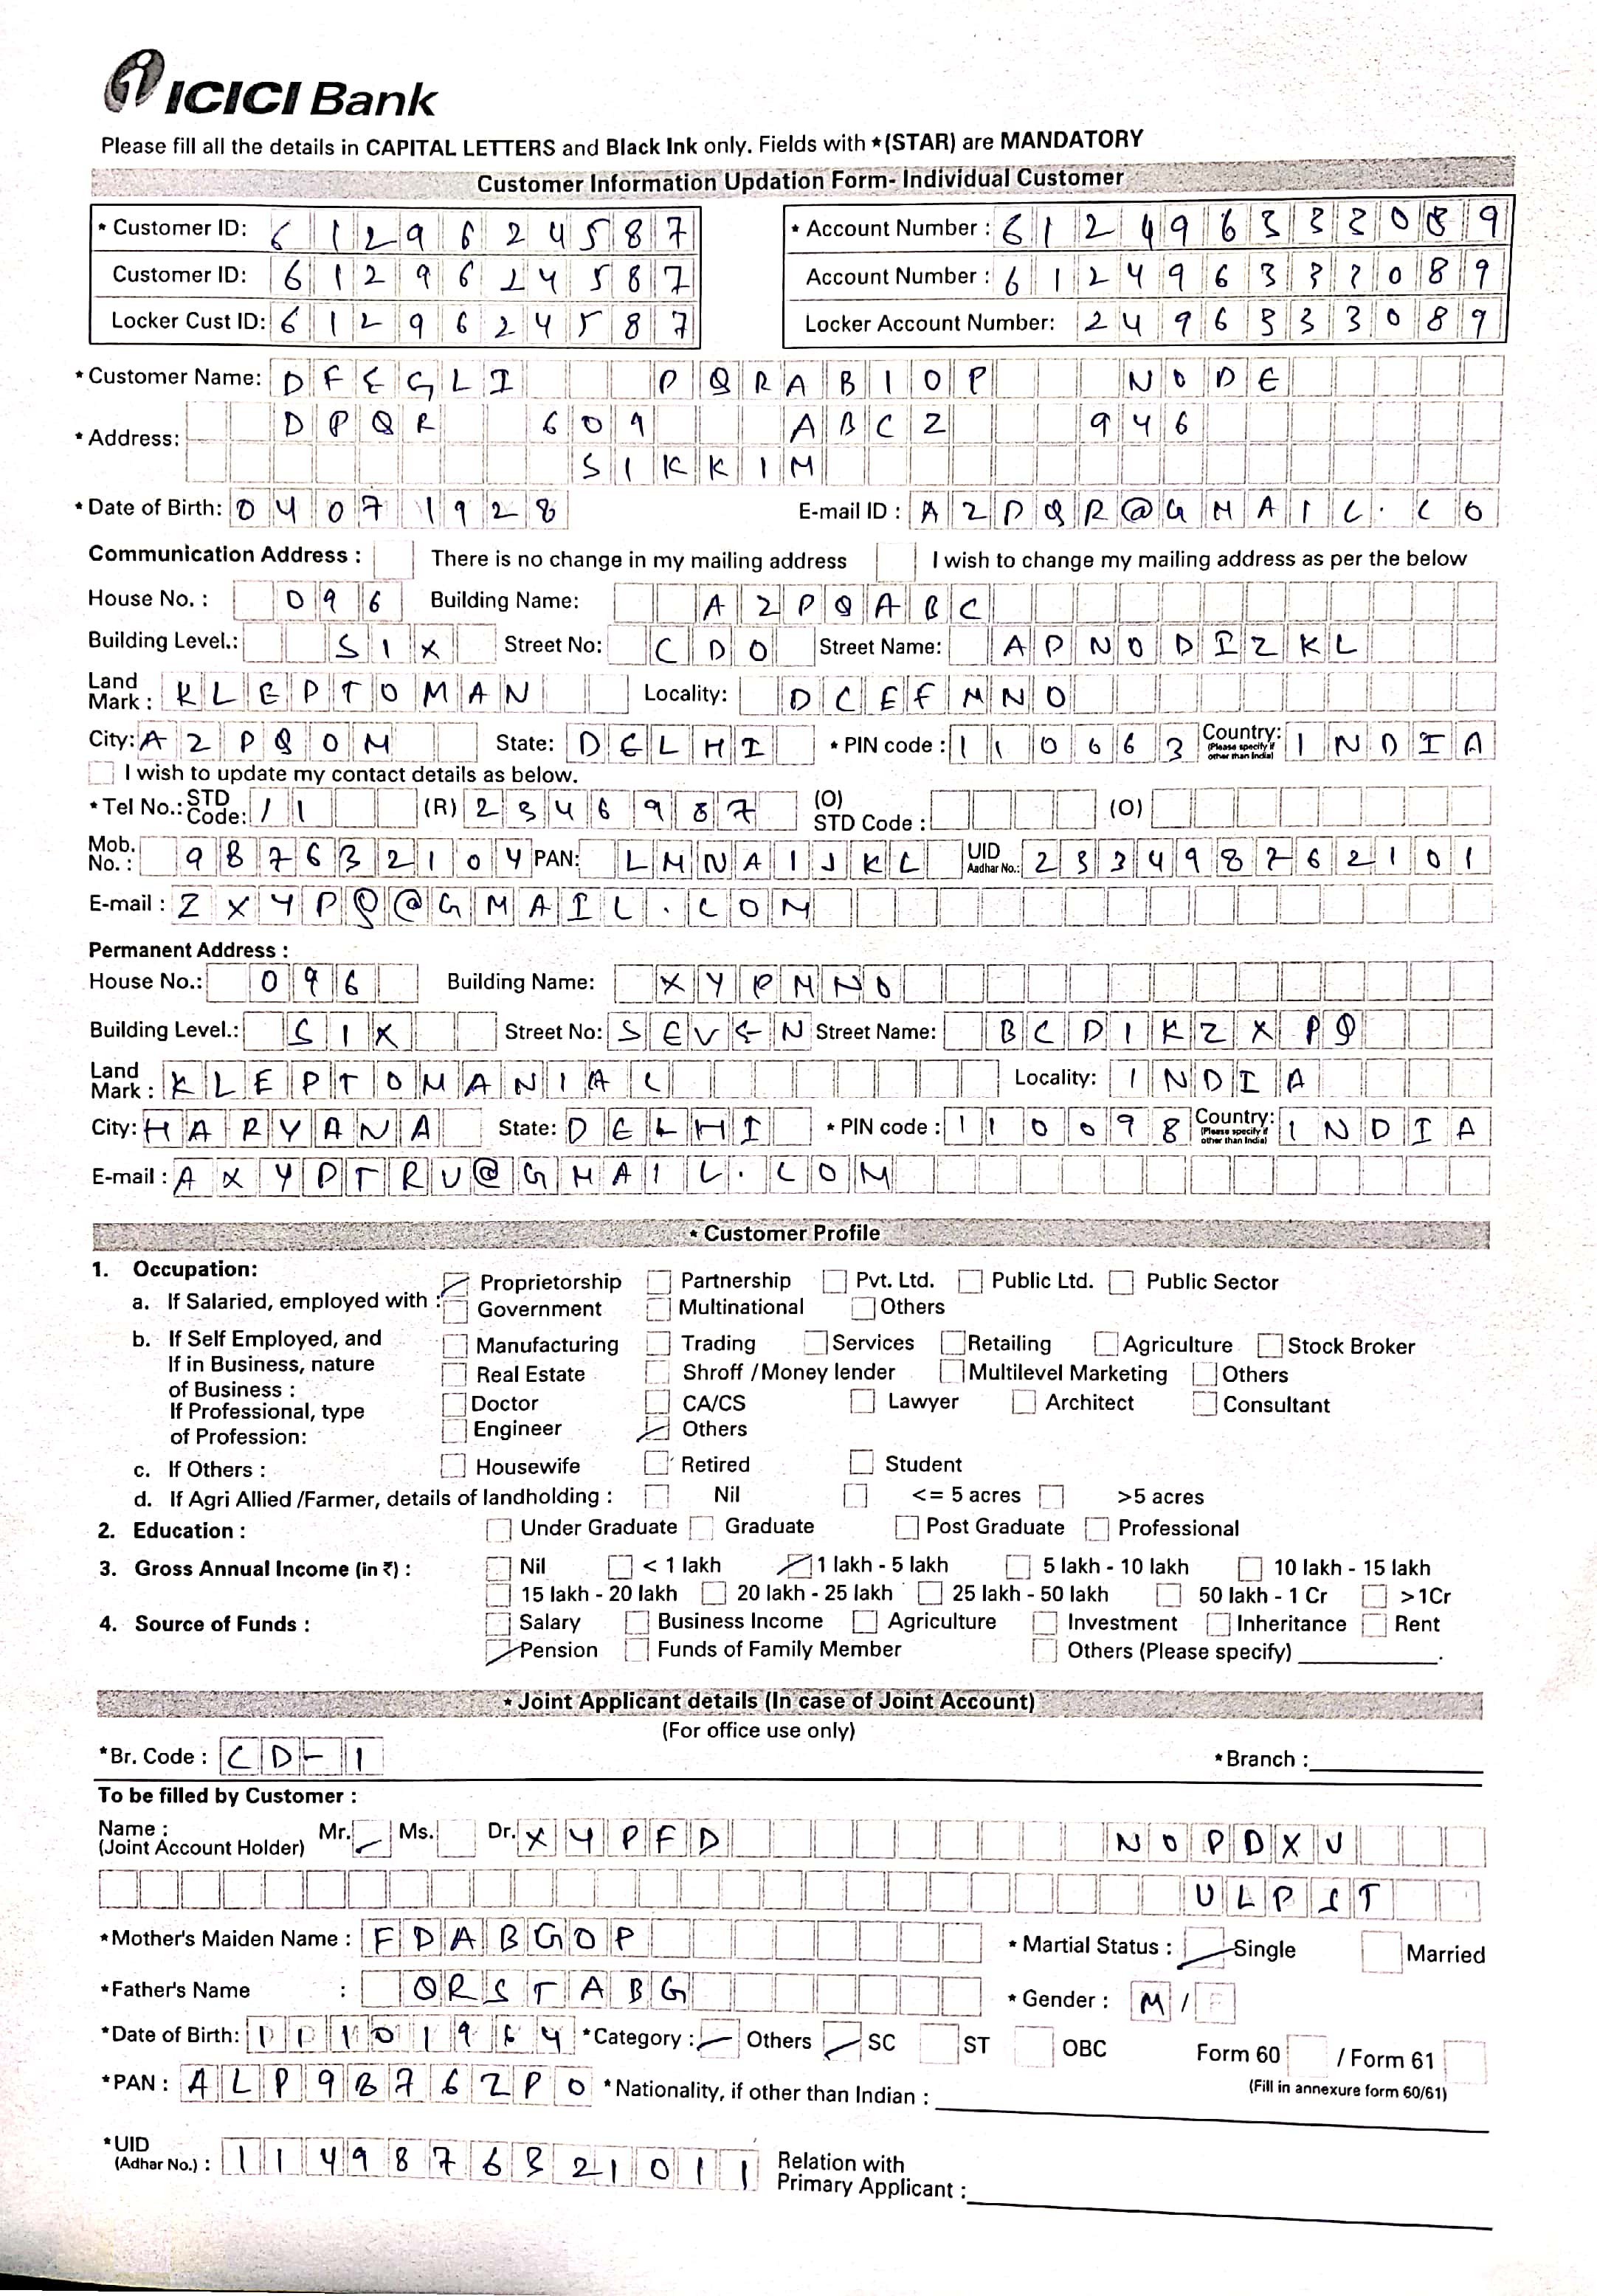 ICICI Bank
Please fill all the details in CAPITAL LETTERS and Black Ink only. Fields with *(STAR) are MANDATORY
Customer Information Updation Form- Individual Customer
* Customer ID: 6129624587 * Account Number : 612496333089
Customer ID: 6129624587 Account Number : 612496333089
Locker Cust ID: 6129624587 Locker Account Number: 2496333089
* Customer Name: DFEGLI PQRABIOP NODE
* Address: DPQR 609 ABCZ 946
SIKKIM
* Date of Birth: 04071928 E-mail ID : AZPQR@GMAIL.CO
Communication Address : There is no change in my mailing address I wish to change my mailing address as per the below
House No. : 096 Building Name: AZPQABC
Building Level.: SIX Street No: CDO Street Name: APNODIZKL
Land Mark : KLEPTOMAN Locality: DCEFMNO
City: AZPQOM State: DELHI * PIN code : 110663 Country: (Please specify if other than India) INDIA
I wish to update my contact details as below.
* Tel No.: STD Code: 11 (R) 2346987 (O) STD Code : (O)
Mob. No. : 987632104 PAN: LMNAIJKL UID Aadhar No.: 233498762101
E-mail : ZXYPQ@GMAIL.COM
Permanent Address :
House No.: 096 Building Name: XYPMNO
Building Level.: SIX Street No: SEVEN Street Name: BCDIKZXPQ
Land Mark : KLEPTOMANIAC Locality: INDIA
City: HARYANA State: DELHI * PIN code : 110098 Country: (Please specify if other than India) INDIA
E-mail : AXYPTRU@GMAIL.COM
* Customer Profile
1. Occupation:
a. If Salaried, employed with : Proprietorship Partnership Pvt. Ltd. Public Ltd. Public Sector
Government Multinational Others
b. If Self Employed, and If in Business, nature of Business : Manufacturing Trading Services Retailing Agriculture Stock Broker
Real Estate Shroff /Money lender Multilevel Marketing Others
If Professional, type of Profession: Doctor CA/CS Lawyer Architect Consultant
Engineer Others
c. If Others : Housewife Retired Student
d. If Agri Allied /Farmer, details of landholding : Nil <= 5 acres >5 acres
2. Education : Under Graduate Graduate Post Graduate Professional
3. Gross Annual Income (in ₹) : Nil < 1 lakh 1 lakh - 5 lakh 5 lakh - 10 lakh 10 lakh - 15 lakh
15 lakh - 20 lakh 20 lakh - 25 lakh 25 lakh - 50 lakh 50 lakh - 1 Cr >1Cr
4. Source of Funds : Salary Business Income Agriculture Investment Inheritance Rent
Pension Funds of Family Member Others (Please specify)
* Joint Applicant details (In case of Joint Account)
(For office use only)
*Br. Code : CD-1 *Branch :
To be filled by Customer :
Name : (Joint Account Holder) Mr. Ms. Dr. XYPFD NOPDXU
ULPIT
*Mother's Maiden Name : FDABGOP * Martial Status : Single Married
*Father's Name : QRSTABG * Gender : M / F
*Date of Birth: 11101964 *Category : Others SC ST OBC Form 60 / Form 61
(Fill in annexure form 60/61)
*PAN : ALP98762PO *Nationality, if other than Indian :
*UID (Adhar No.) : 1149876321011 Relation with Primary Applicant :